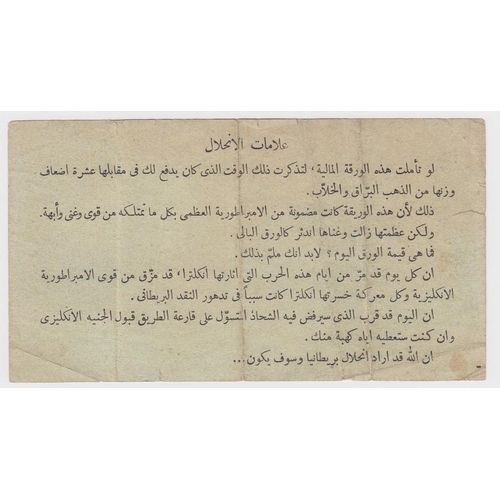 علامات الانحلال
لو تأملت هذه الورقة المالية، لتذكرت ذلك الوقت الذى كان يدفع لك فى مقابلها عشرة اضعاف
وزنها من الذهب البرّاق والخلاّب.
ذلك لأن هذه الوريقة كانت مضمونة من الامبراطورية العظمى بكل ما تمتلكه من قوى وغنى وأبهة.
ولكن عظمتها زالت وغناها اندثر كالورق البالى.
فما هى قيمة الورق اليوم؟ لابد انك ملمّ بذلك.
ان كل يوم قد مرّ من ايام هذه الحرب التى أثارتها أنكلترا، قد مزّق من قوى الامبراطورية
الانكليزية وكل معركة خسرتها انكلترا كانت سبباً فى تدهور النقد البريطانى.
ان اليوم قد قرب الذى سيرفض فيه الشحاذ المتسوّل على قارعة الطريق قبول الجنيه الانكليزى
وان كنت ستعطيه اياه كهبة منك.
ان الله قد اراد انحلال بريطانيا وسوف يكون...